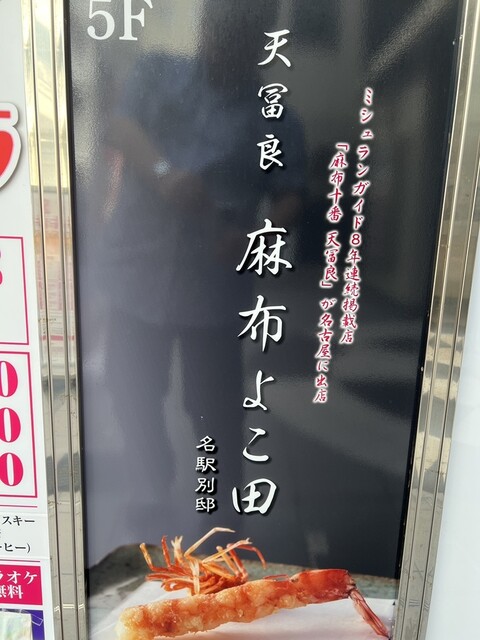 5F
ミシュランガイド8年連続掲載店
「麻布十番 天冨良」が名古屋に出店
天冨良 麻布よこ田
名駅別邸
0
0
0
スキー
ーヒー)
ラオケ
無料